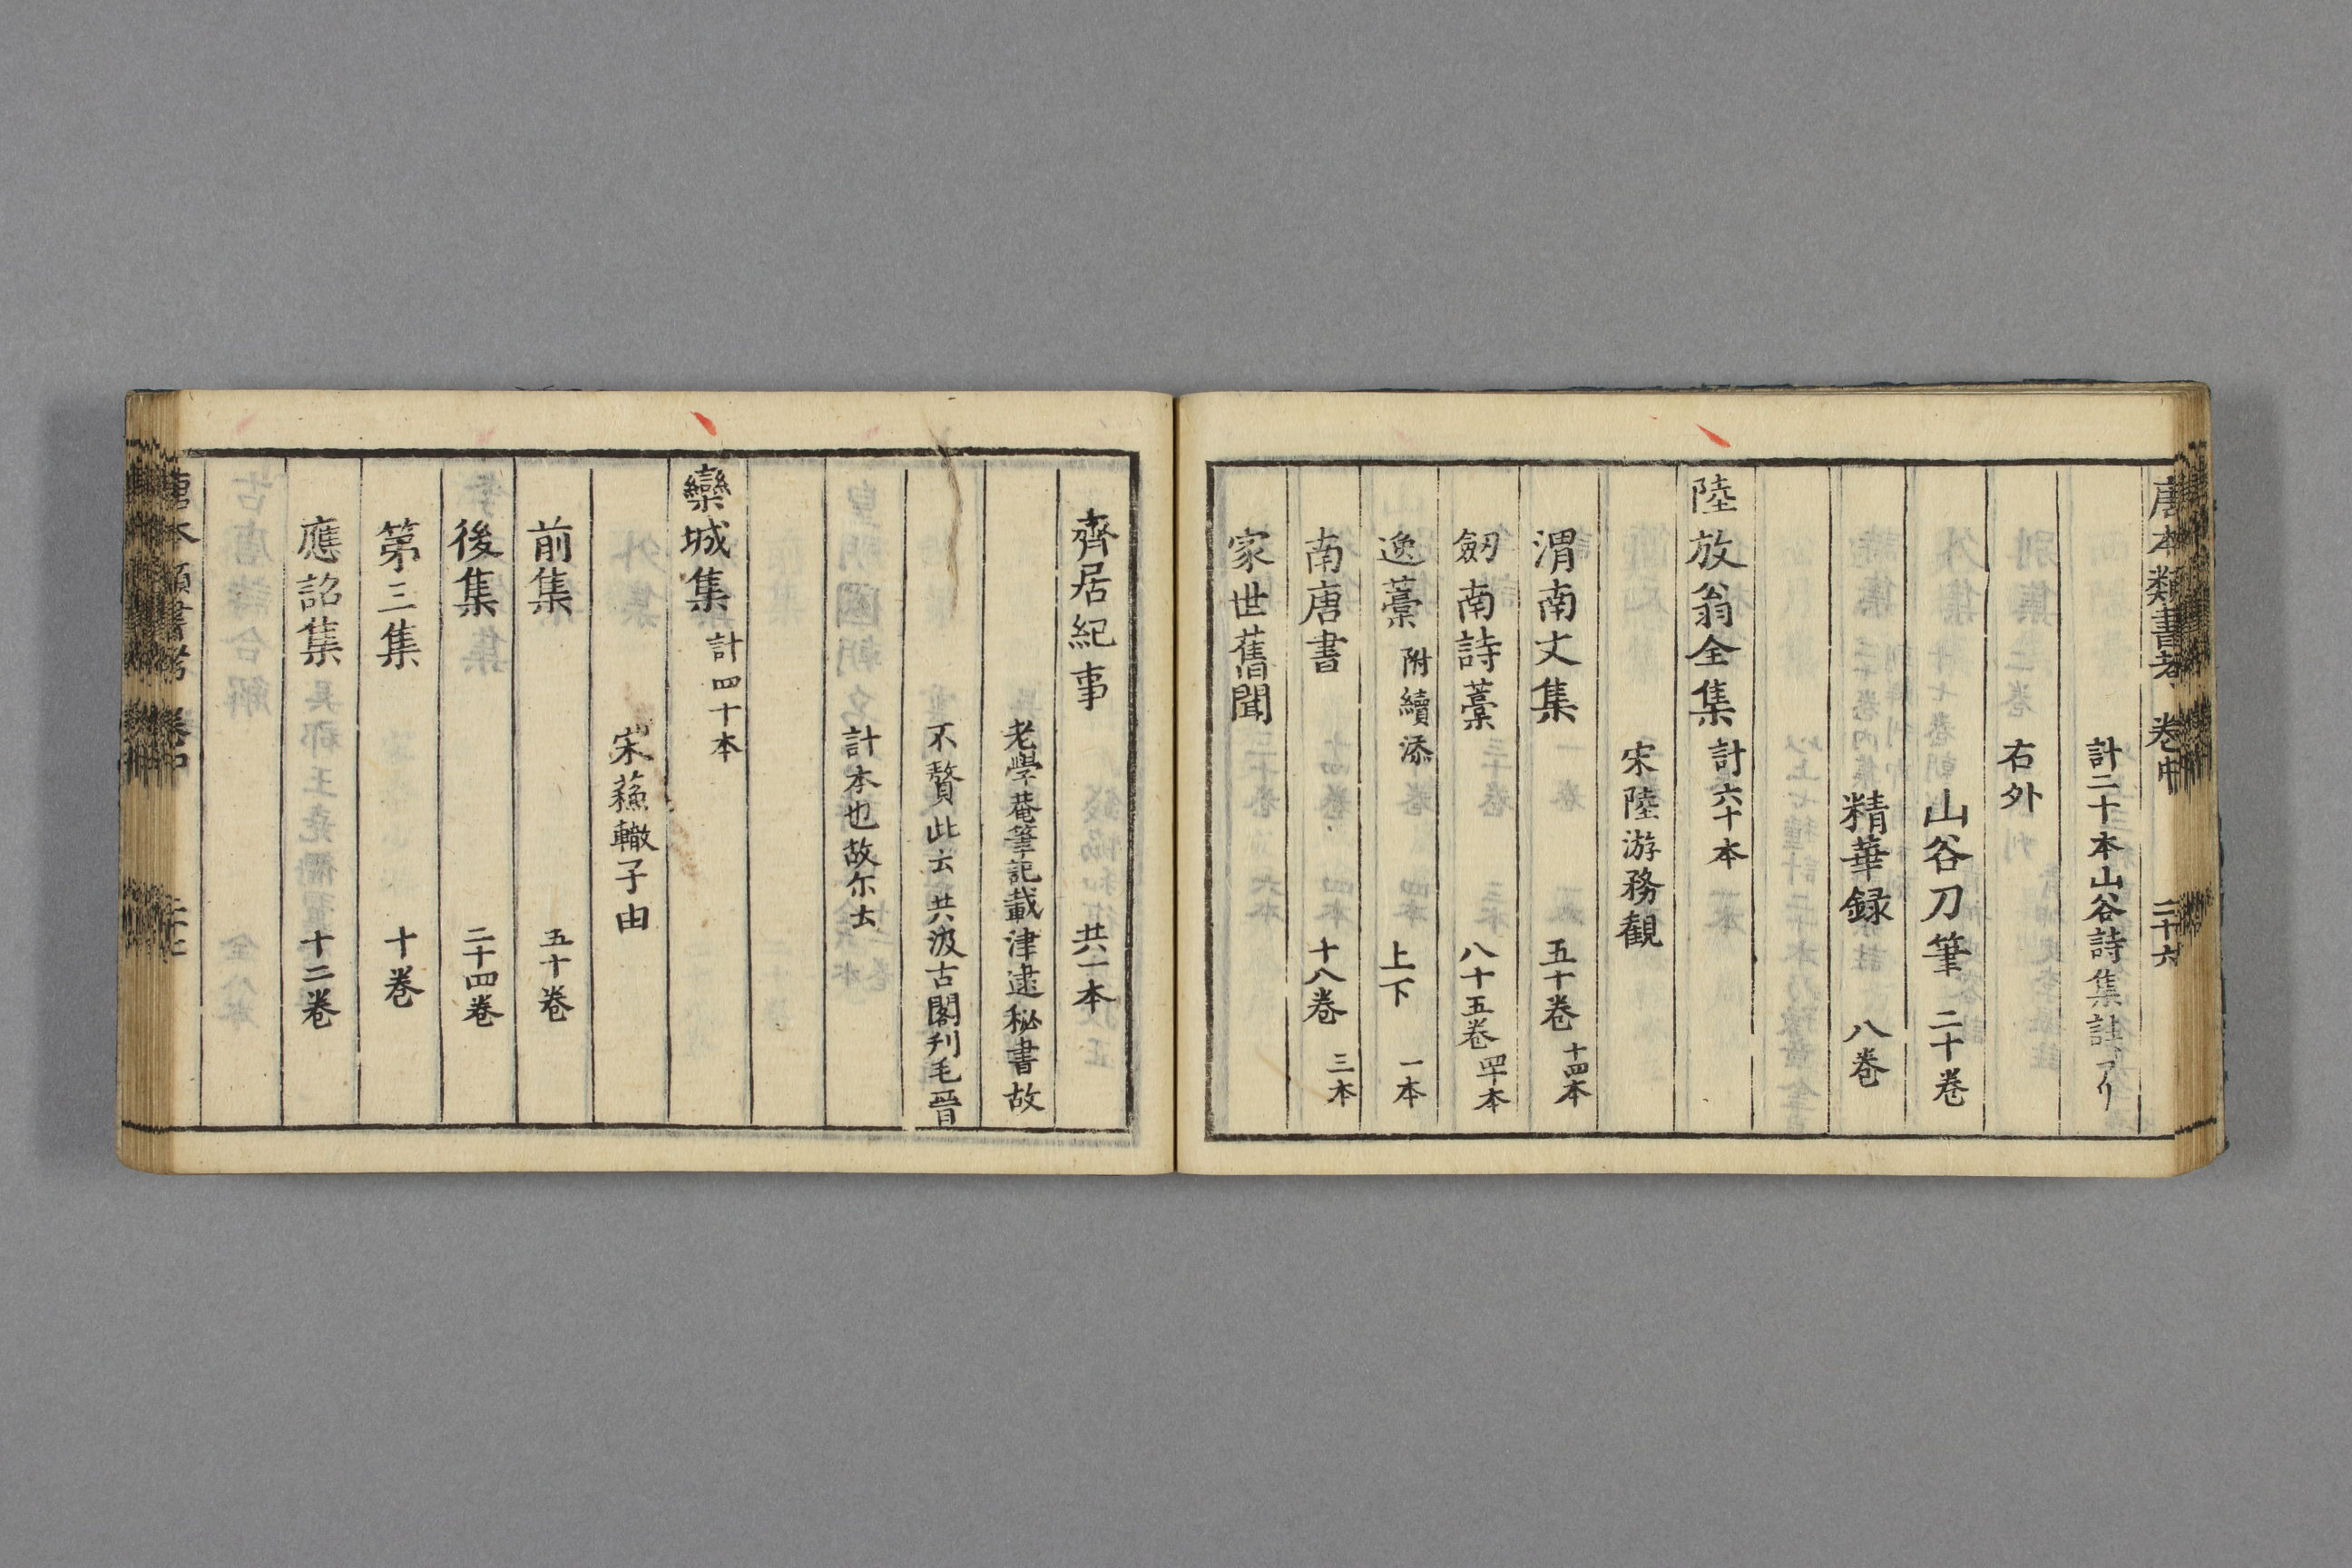 唐本類書考 卷中 二十六
計二十本山谷詩集註アリ
右外
山谷刀筆 二十卷
精華録 八卷
陸放翁全集 計六十本
宋陸游務観
渭南文集 五十卷 十四本
劔南詩藁 八十五卷 四十本
逸藁 附續添 上下 一本
南唐書 十八卷 三本
家世舊聞
齊居紀事 共一本
老學菴筆記載津逮秘書故
不贅此云共汲古閣刋毛晉
計本也故尓云
欒城集 計四十本
宋蘓轍子由
前集 五十卷
後集 二十四卷
第三集 十卷
應詔集 十二卷
唐本類書考 卷中 二十七